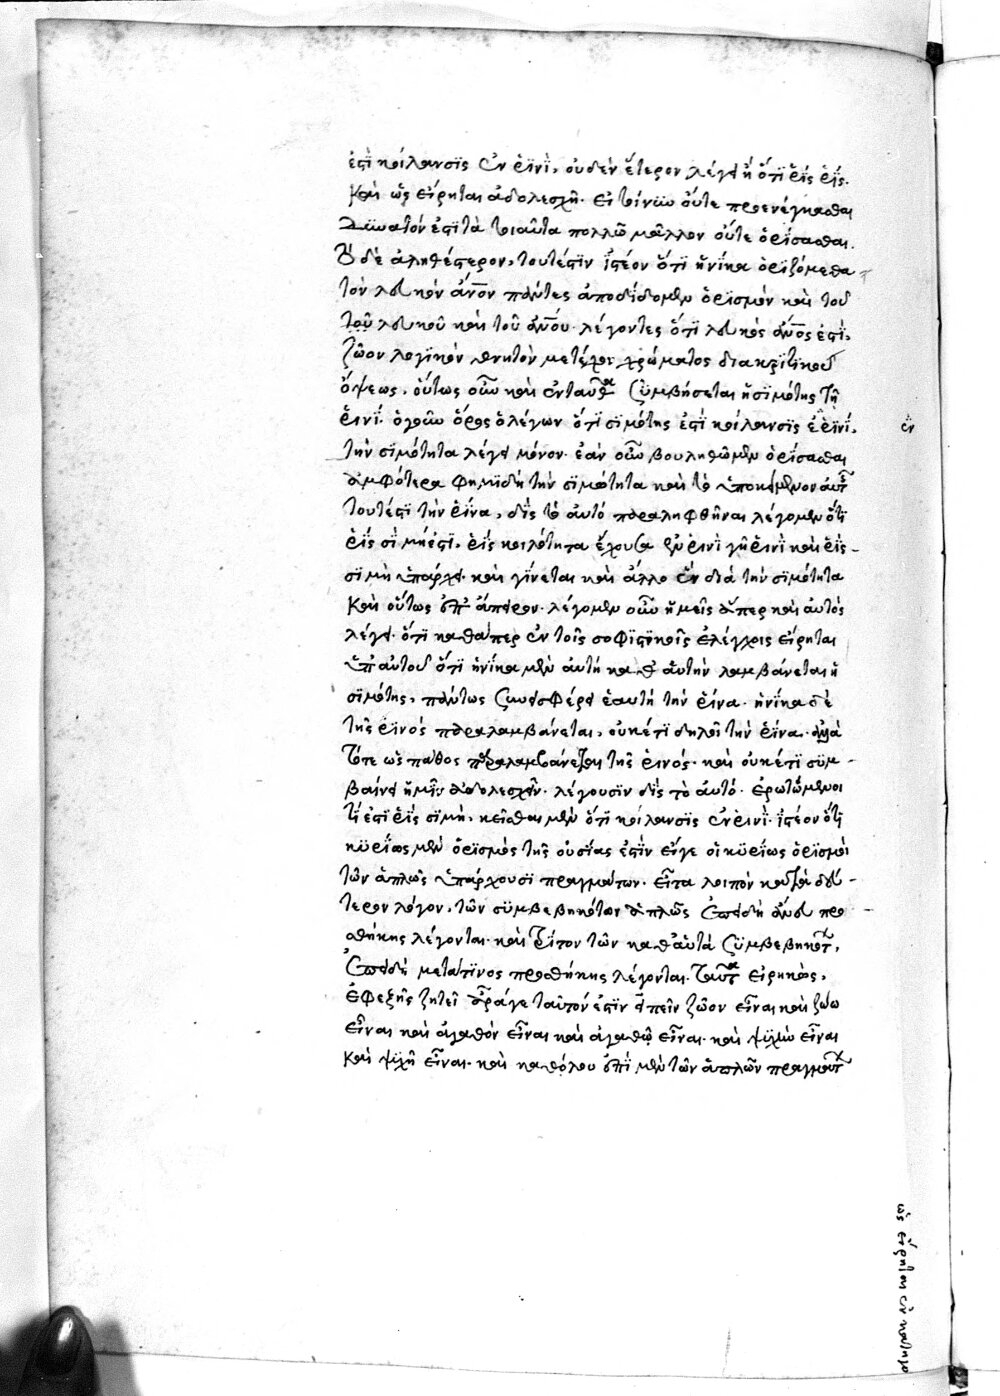 ἐστὶ κοίλανσις ἐν ῥινὶ, οὐδὲν ἕτερον λέγει ἢ ὅτι ῥὶς ῥίς.
καὶ ὡς εἴρηται ἀδολεσχῆ. εἰ τοίνυν οὔτε προενέγκασθαι
δυνατόν ἐστι τὰ τοιαῦτα πολλῶ μᾶλλον οὔτε ὁρίσασθαι.
ἀληθέστερον, τουτέστιν ἰστέον ὅτι ἡνίκα ὁριζόμεθα
τὸν λευκὸν ἄνον πάντες ἀποδίδομεν ὁρισμὸν καὶ τοῦ
τοῦ λευκοῦ καὶ τοῦ ἀνου. λέγοντες ὅτι λευκὸς ἄνος ἐστὶ,
ζῶον λογικὸν θνητὸν μετέχον χρώματος διακριτικοῦ
ὄψεως, οὕτως οὖν καὶ ἐνταῦθα συμβήσεται ἡ σιμότης τῆ
ῥινί. ὁ γοῦν ὅρος ὁ λέγων ὅτι σιμότης ἐστὶ κοίλανσις ἐν ῥινί,
τὴν σιμότητα λέγει μόνον. ἐὰν οὖν βουληθῶμεν ὁρίσασθαι
ἀμφότερα φημὶ δὴ τὴν σιμότητα καὶ τὸ ὑποκείμενον αὐτῆ
τουτέστι τὴν ῥῖνα, δὶς τὸ αὐτὸ παραληφθῆναι λέγομεν ὅτι
ῥὶς σιμή ἐστι, ῥὶς κοιλότητα ἔχουσα ἐν ῥινὶ ῥινὶ καὶ ῥὶς
σιμὴ ὑπάρχει. καὶ γίνεται καὶ ἄλλο ἓν διὰ τὴν σιμότητα
καὶ οὕτως ἐπ' ἄπειρον. λέγομεν οὖν ἡμεῖς ἅπερ καὶ αὐτὸς
λέγει. ὅτι καθάπερ ἐν τοῖς σοφιστικοῖς ἐλέγχοις εἴρηται
ὑπ' αὐτοῦ ὅτι ἡνίκα μὲν αὐτὴ καθ' αὑτὴν λαμβάνεται ἡ
σιμότης, πάντως συνεισφέρει ἑαυτῆ τὴν ῥῖνα. ἡνίκα δὲ
τῆς ῥινὸς παραλαμβάνεται, οὐκέτι δηλοῖ τὴν ῥῖνα. ἀλλὰ
τότε ὡς πάθος παραλαμβάνεται τῆς ῥινός. καὶ οὐκέτι συμ-
βαίνει ἡμῖν ἀδολεσχεῖν. λέγουσιν δὶς τὸ αὐτό. ἐρωτώμενοι
τί ἐστι ῥὶς σιμὴ, κεῖσθαι μὲν ὅτι κοίλανσις ἐν ῥινί. ἰστέον ὅτι
κυρίως μὲν ὁρισμὸς τῆς οὐσίας ἐστὶν εἴγε οἱ κυρίως ὁρισμοὶ
τῶν ἁπλῶς ὑπάρχουσι πραγμάτων. εἶτα λοιπὸν κατὰ δεύ-
τερον λόγον, τῶν συμβεβηκότων ἁπλῶς ἐπειδὴ ἄνευ προ
σθήκης λέγονται. καὶ τρίτον τῶν καθ' αὑτὰ συμβεβηκότων,
ἐπειδὴ μετά τινος προσθήκης λέγονται. ταῦτα εἰρηκὼς,
ἐφεξῆς ζητεῖ ἆράγε ταὐτόν ἐστιν εἰπεῖν ζῶον εἶναι καὶ ζώω
εἶναι καὶ ἀγαθὸν εἶναι καὶ ἀγαθῶ εἶναι. καὶ ψυχὴν εἶναι
καὶ ψυχῆ εἶναι. καὶ καθόλου ἐπὶ μὲν τῶν ἁπλῶν πραγμάτων
ἐν
ὡς εἴρηται ἐν